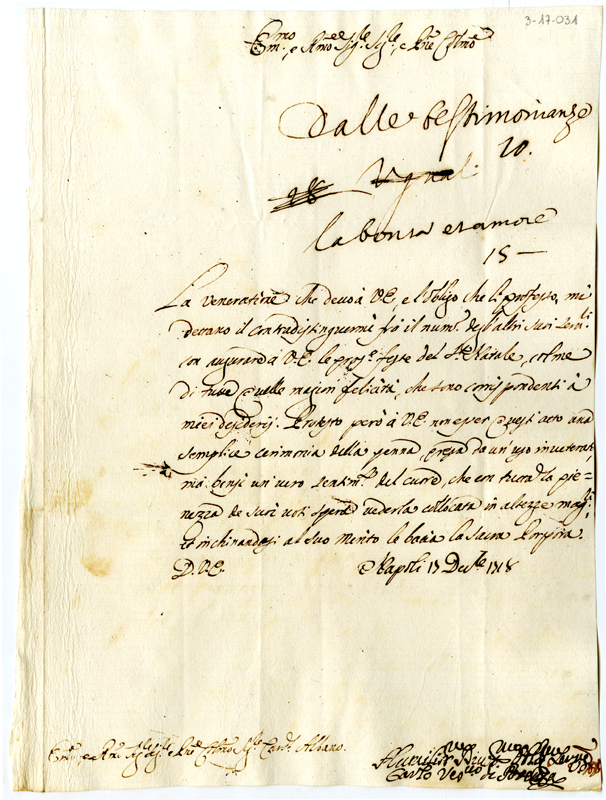 3-17-031
Em.mo e Rmo Sig.re Sig.re e Pne Colmo
Dalle testimonianze
10.
la bontà et amore
15 —
La veneratione che devo à V.E. e l'obligo che li professo, mi
devono il contradistinguermi frà il num.o degl'altri suoi
con augurare à V.E. le pros.e feste del S.to Natale, colme
di tutte quelle magiori felicità, che sono corrispondenti à
miei desiderij. Protesto però à V.E. non esser quest'atto una
semplice cerimonia della penna, presa da un'uso inveterat
mà bensi un vero sentim.to del cuore, che con tutta la pie=
nezza de suoi voti spera vederla collocata in altezze mag.ri
Et inchinandosi al suo merito le bacia la Sacra Porpora.
D.V.E. Napoli 17 Dec.re 1718
Em.o e Rmo Sig.re Sig.re e Pne Colmo Sig.re Card. Albano.
Humiliss.
Carlo Ves.vo di